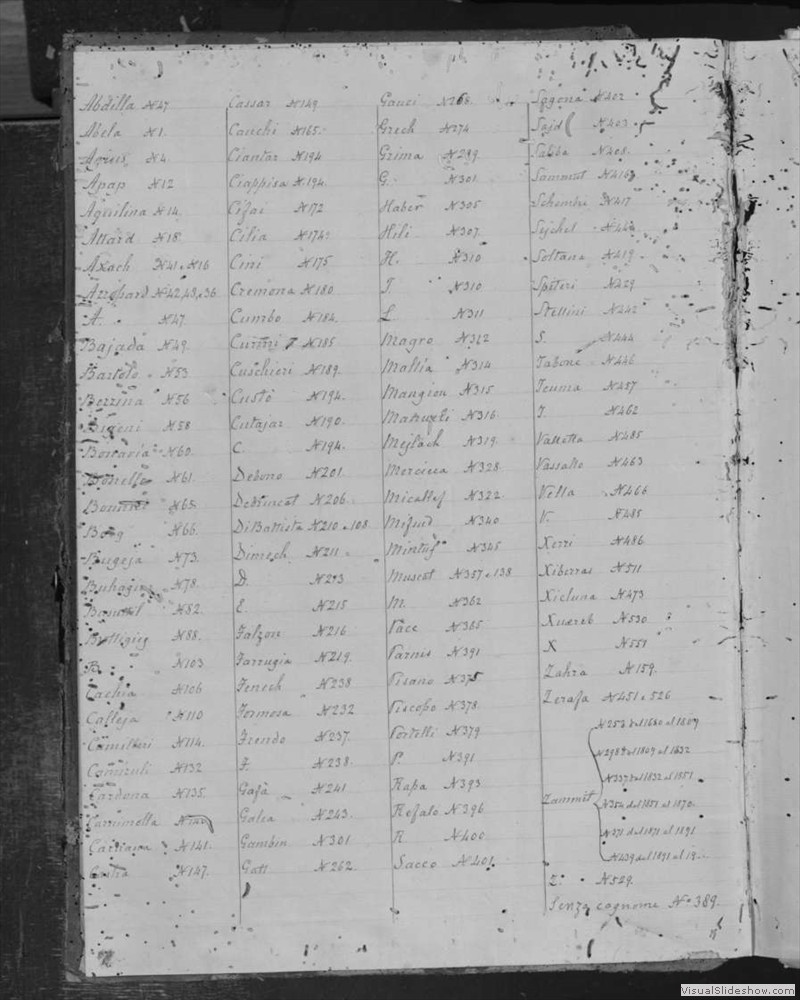 Abdilla N47
Abela N1.
Agius N4.
Apap N12
Aquilina N14.
Attard N18
Axach N41 e N16
Azzopard N42,43,e36
A. N47.
Bajada N49.
Bartolo N53
Bezzina N56
Bigeni N58
N60.
Bonello N61
N65
Borg N66
Bugeja N73.
Buhagiar N78.
N82.
Buttigieg N88.
B. N103
Cachia N106
Calleja N110
Camilleri N114.
Camizuli N132
Cardona N135.
Caruana N141.
N147.
Cassar N149
Cauchi N165.
Ciantar N194
Ciappisa N194.
Cifai N172
Cilia N174.
Cini N175
Cremona N180.
Cumbo N184.
Curmi N185
Cuschieri N189.
Custo N194.
Cutajar N190.
C. N194.
Debono N201.
N206.
DiBattista N210 e 108
Dimech N211
D. N213
E. N215
Falzon N216
Farrugia N219.
Fenech N238
Formosa N232
Frendo N237.
F. N238.
Gafà N241
Galea N243.
Gambin N301
Gatt N262.
Gauci N268
Grech N274
Grima N299
G. N301
Haber N305
Hili N307
H. N310
I. N310
L N311
Magro N312
Mallia N314
Mangion N315
N316
Mejlach N319.
Mercieca N328
Micallef N322
Mifsud N340
Mintuf N345
Muscat N357 e 138
M. N362
Pace N365
Parnis N391
Pisano N375
Piscopo N378.
Portelli N379
P. N391
Rapa N393
Refalo N396
R N400
Sacco N401
Sagona N402
Sajd N403
Saliba N408
Sammut N416
Schembri N417
Sejchel N444
Soltana N419
Spiteri N429
Stellini N442
S. N444
Tabone N446
Teuma N457
T. N462
Valletta N485
Vassallo N463
Vella N466
V. N485
Xerri N486
Xiberras N511
Xicluna N473
Xuereb N530
X N551
Zahra N159.
Zerafa N451 e 526
Zammit
N253 del 1680 al 1809
N298 del 1809 al 1832
N337 del 1832 al 1851
N354 del 1851 al 1870
N371 del 1871 al 1891
N439 del 1891 al 19
Z. N529.
Senza cognome No 389.
VisualSlideshow.com